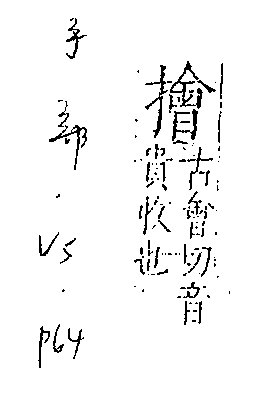 擓
古會切音
貴收也
手部·V5·P64